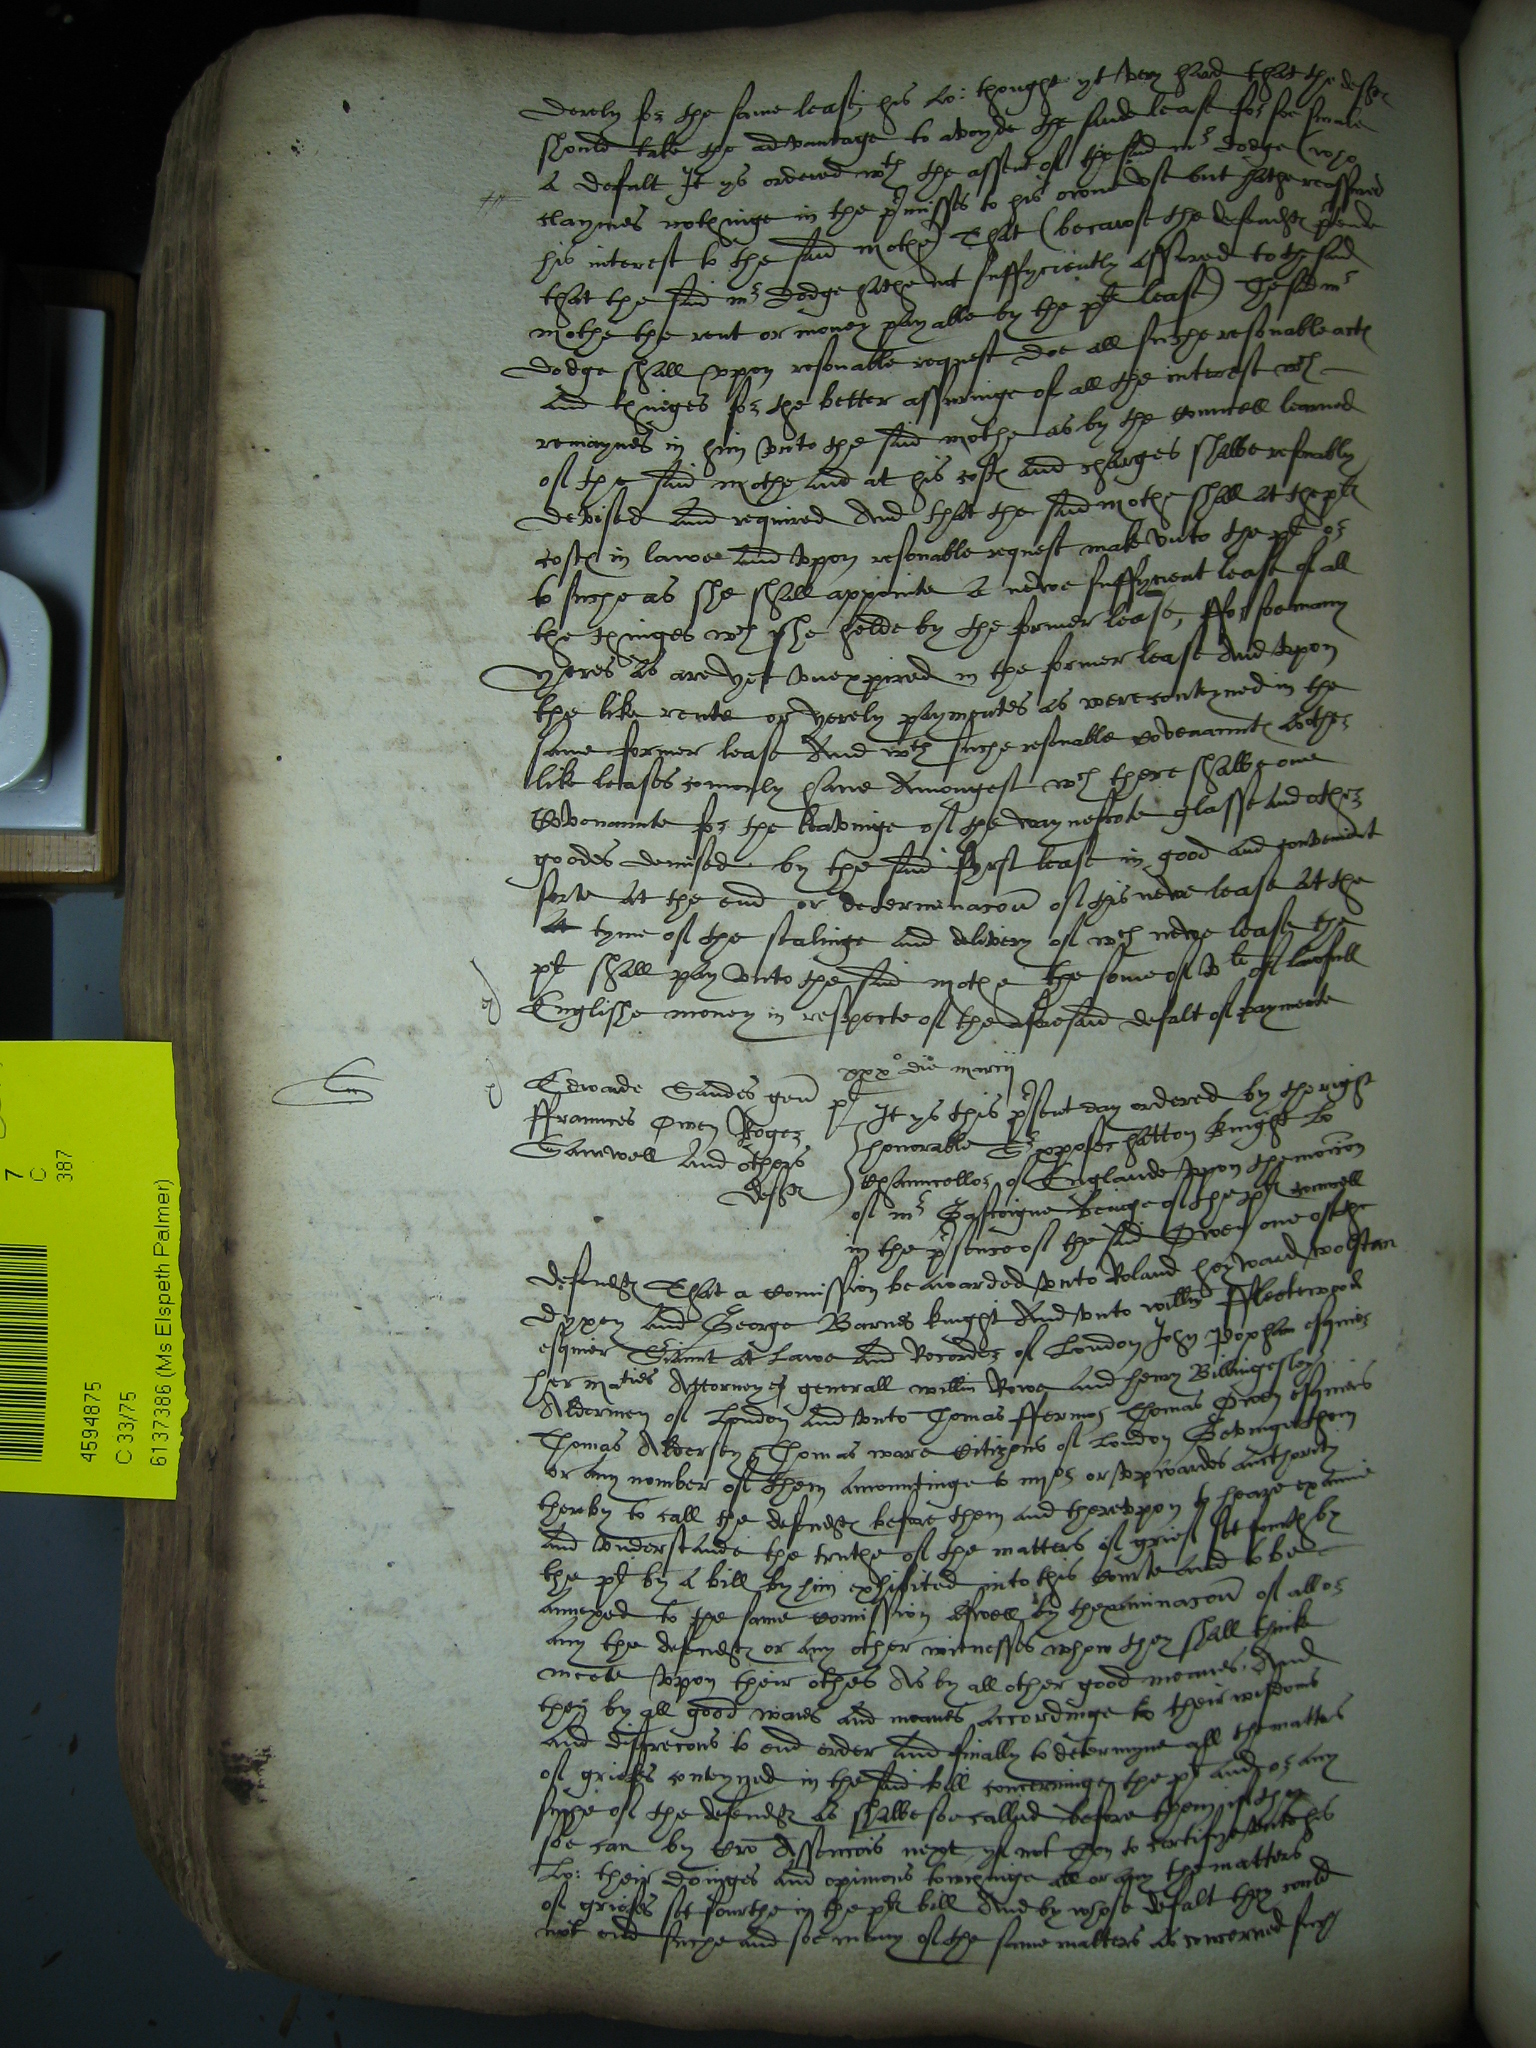 derely for the same lease, his Lo: thought yt very hard that the defts
should take the advantage to avoyde the saide lease for soe smale
a defalt It ys ordered wth the assent of the said mr Dodge (who
claymes nothinge in the pmisses to his owne use but hathe reassured
his interest to the said mothe) That (becawse the defendts ptende
that the said mr Dodge hathe not suffyciently assured to the said
mothe the rent or money payable by the pltes lease) The said mr
Dodge shall uppon resonable request doe all suche resonable actes
and thinges for the better assuringe of all the interest wch
remaynes in him unto the said mothe as by the councell learned
of the said mothe and at his costes and charges shalbe resonably
devised and required And that the said mothe shall at the pltes
costes in lawe and uppon resonable request make unto the plt or
to suche as she shall appointe a newe suffycient lease of all
the thinges wch she helde by the former lease, ffor soe many
yeres as are yet unexpired in the former lease And uppon
the like rente or yerely paymentes as were conteyned in the
same former lease And wth suche resonable covenauntes as other
like leases comonly have Amongest wch there shalbe one
Covenaunte for the leavinge of the waynescote glasse and other
goodes demised by the said fyrst lease in good and convenient
sorte at the end or determinacon of this newe lease At the
tyme of the sealinge and delivery of wch newe lease the
plt shall pay unto the said mothe the some of vli of lawfull
Englishe money in respecte of the aforesaid defalt of paymente
xxxo die marcij
Edwarde Sandes gen plt
ffraunces Owen Roger
Sawell and others
defts
It ys this psent day ordered by the right
honorable Sr xpofer hatton knight Lo
Chauncellor of Englande uppon the mocion
of mr Gascoigne beinge of the pltes councell
in the psence of the said Owen one of the
defendts That a comission be awarded unto Roland heyward wolstan
Dyxey and George Barnes knights And unto willm ffleetewood
esquier Siaunt at Lawe and Recorder of London John Popham esquier
her maties Attorney generall willm Rowe and henry Billingesley
Aldermen of London and unto Thomas ffermor Thomas Owen esquiers
Thomas Aldersey Thomas ware Citizens of London Gevinge them
or any nomber of them amountinge to iiijor or upwardes aucthority
therby to call the defendts before them and thereuppon to heare examine
and understande the truthe of the matters of grief set fourth by
the plt by a bill by him exhibited into this Courte and to be
annexed to the same comission aswell by thexaminacon of all or
any the defendts or any other witnesses whom they shall thinke
meete uppon their othes As by all other good meanes. And
they by all good waies and meanes accordinge to their wisdoms
and discrecons to end order and finally to determyne all the matters
of griefes conteyned in the said bill concerninge the plt and or any
suche of the defendts as shalbe soe called before them if they
soe can by cro Assencois next, yf not then to certifye unto his
Lo: their doinges and opinions towchinge all or any the matters
of griefes set fourthe in the pltes bill And by whose defalt they could
not end suche and soe many of the same matters as concerned such
7
C
387
4594875
C 33/75
6137386 (Ms Elspeth Palmer)